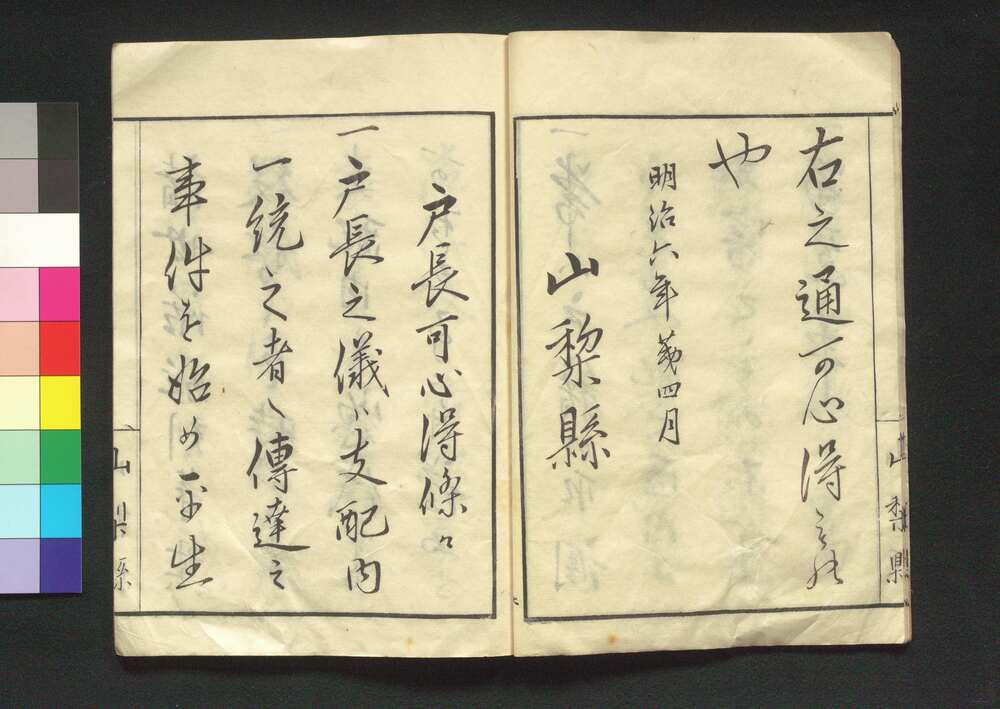 右之通可心得もの
也
明治六年第四月
山梨縣
戸長可心得條々
一戸長之儀ハ支配内
一統之者ヘ傳達之
事件を始め平生
山梨縣
山梨縣